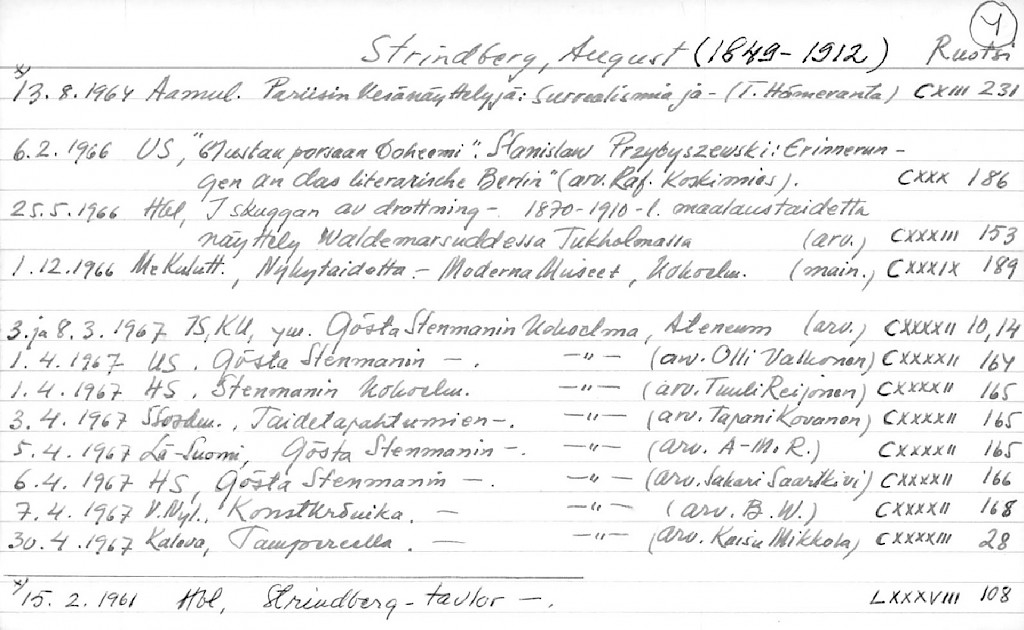 Y
Strindberg, August (1849-1912) Ruotsi
x) 13.8.1964 Aamul. Pariisin kesänäyttelyjä: Surrealismia ja - (T. Hämeranta) CXIII 231
6.2.1966 US, "Mustan porsaan boheemi": Stanislaw Przybyszewski: Erinnerun-
gen an das literarische Berlin" (arv. Raf. Koskimies). CXXX 186
25.5.1966 Hbl, I skuggan av drottning - 1870-1910-l. maalaustaidetta
näyttely Waldemarsuddessa Tukholmassa (arv.) CXXXIII 153
1.12.1966 MeKulutt., Nykytaidetta - Moderna Museet, kokoelm. (main.) CXXXIX 189
3. ja 8.3.1967 IS, KU, ym. Gösta Stenmanin kokoelma, Ateneum (arv.) CXXXXII 10,14
1.4.1967 US, Gösta Stenmanin - . -"- (arv. Olli Valkonen) CXXXXII 164
1.4.1967 HS, Stenmanin kokoelm. -"- (arv. Tuuli Reijonen) CXXXXII 165
3.4.1967 SSosdem., Taidetapahtumien -. -"- (arv. Tapani Kovanen) CXXXXII 165
5.4.1967 Lä-Suomi, Gösta Stenmanin -. -"- (arv. A-M.R.) CXXXXII 165
6.4.1967 HS, Gösta Stenmanin -. -"- (arv. Sakari Saarikivi) CXXXXII 166
7.4.1967 V.Nyl., Konstkrönika. - -"- (arv. B.W.) CXXXXII 168
30.4.1967 Kaleva, Tampereella. - -"- (arv. Kaisu Mikkola) CXXXXIII 28
x) 15.2.1961 Hbl, Strindberg-tavlor -. LXXXVIII 108